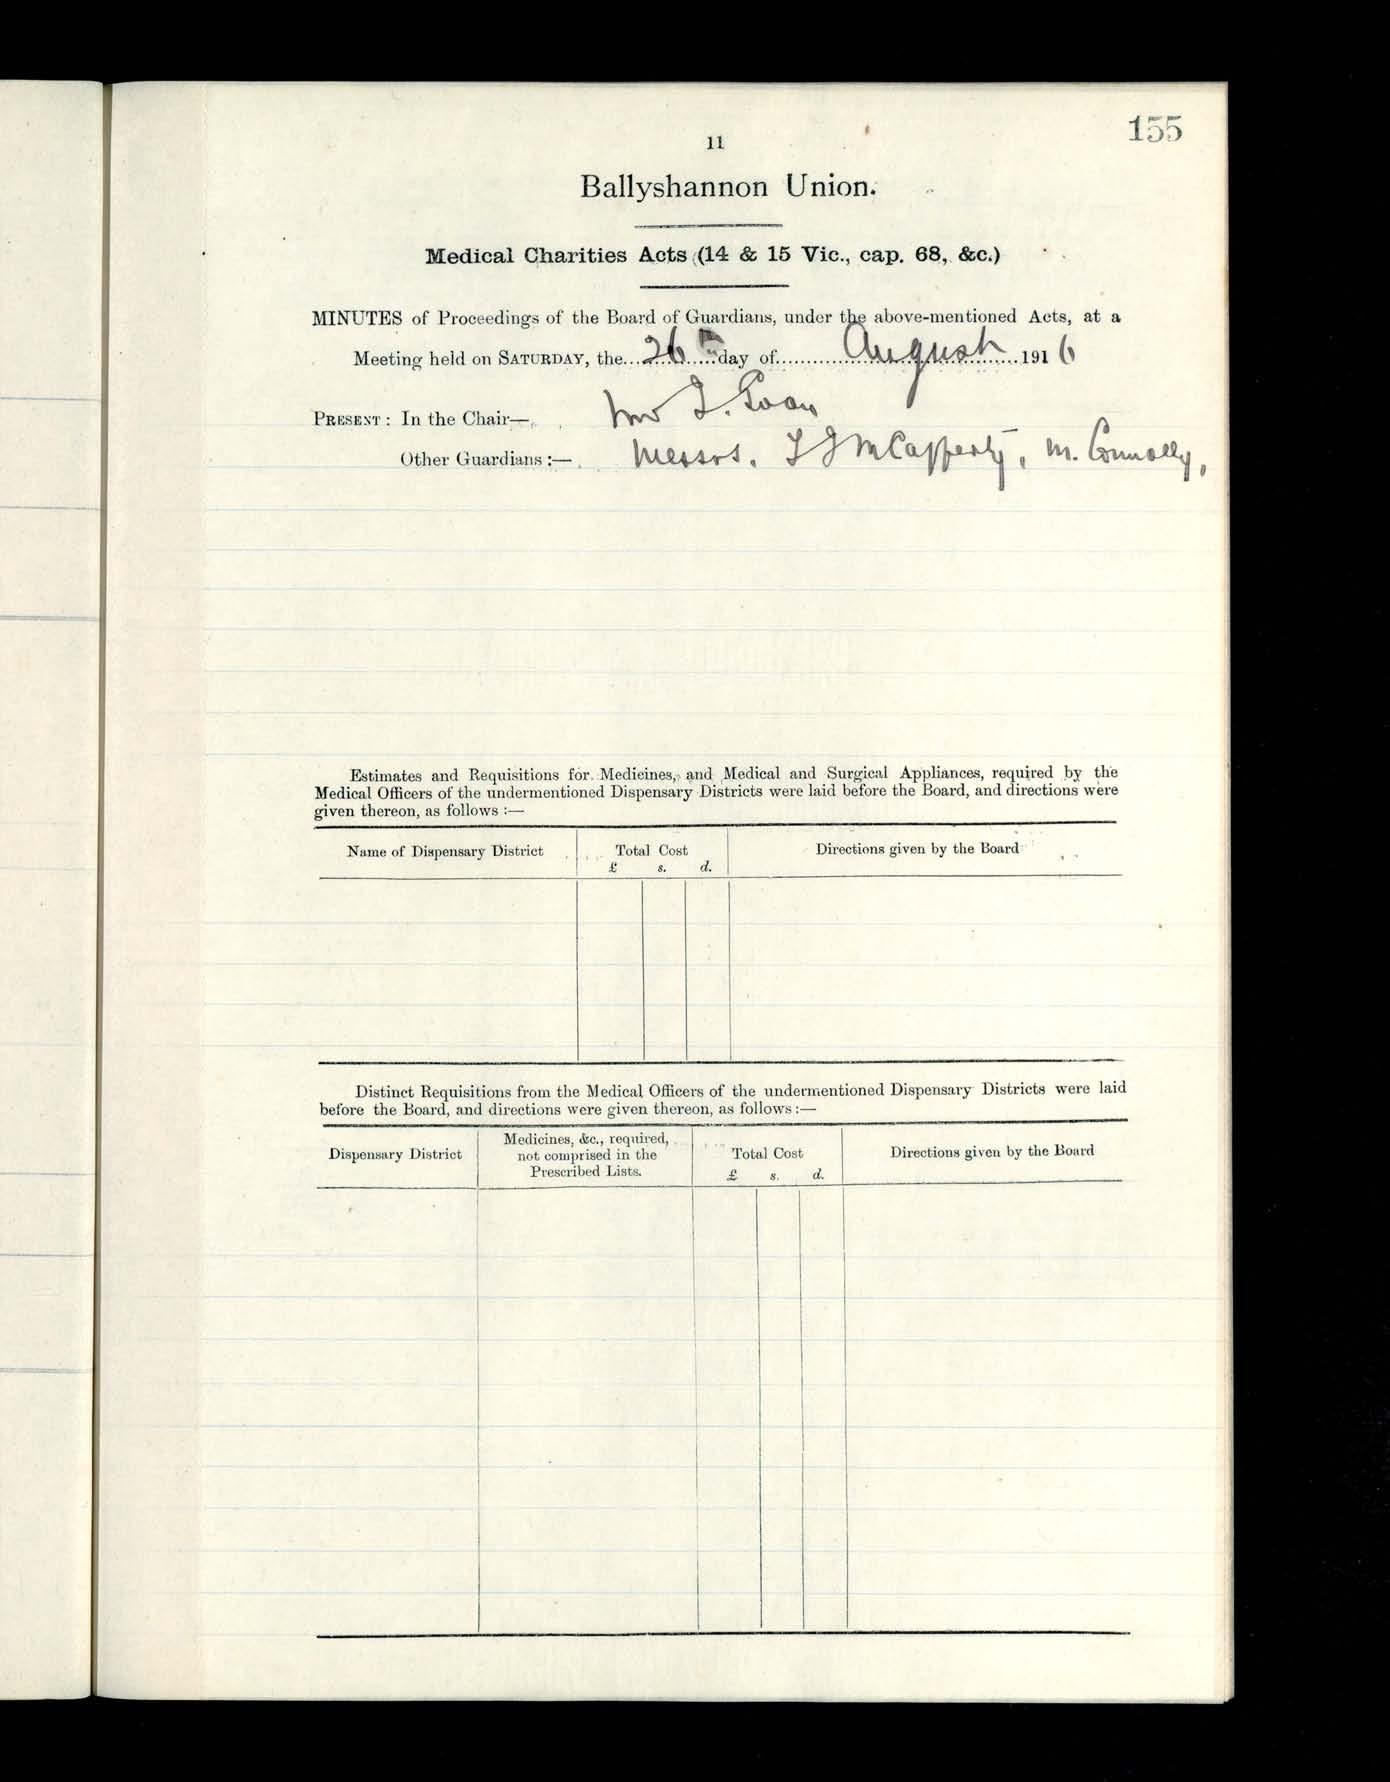 155
11
Ballyshannon Union.
Medical Charities Acts (14 & 15 Vic., cap. 68, &c.)
MINUTES of Proceedings of the Board of Guardians, under the above-mentioned Acts, at a
Meeting held on SATURDAY, the...26th...day of...August...1916
PRESENT: In the Chair—
Other Guardians:— Messrs. T J McCafferty, M. Connolly,
Estimates and Requisitions for Medicines, and Medical and Surgical Appliances, required by the
Medical Officers of the undermentioned Dispensary Districts were laid before the Board, and directions were
given thereon, as follows:—
Name of Dispensary District Total Cost Directions given by the Board
£ s. d.
Distinct Requisitions from the Medical Officers of the undermentioned Dispensary Districts were laid
before the Board, and directions were given thereon, as follows:—
Dispensary District Medicines, &c., required, not comprised in the Prescribed Lists. Total Cost Directions given by the Board
£ s. d.